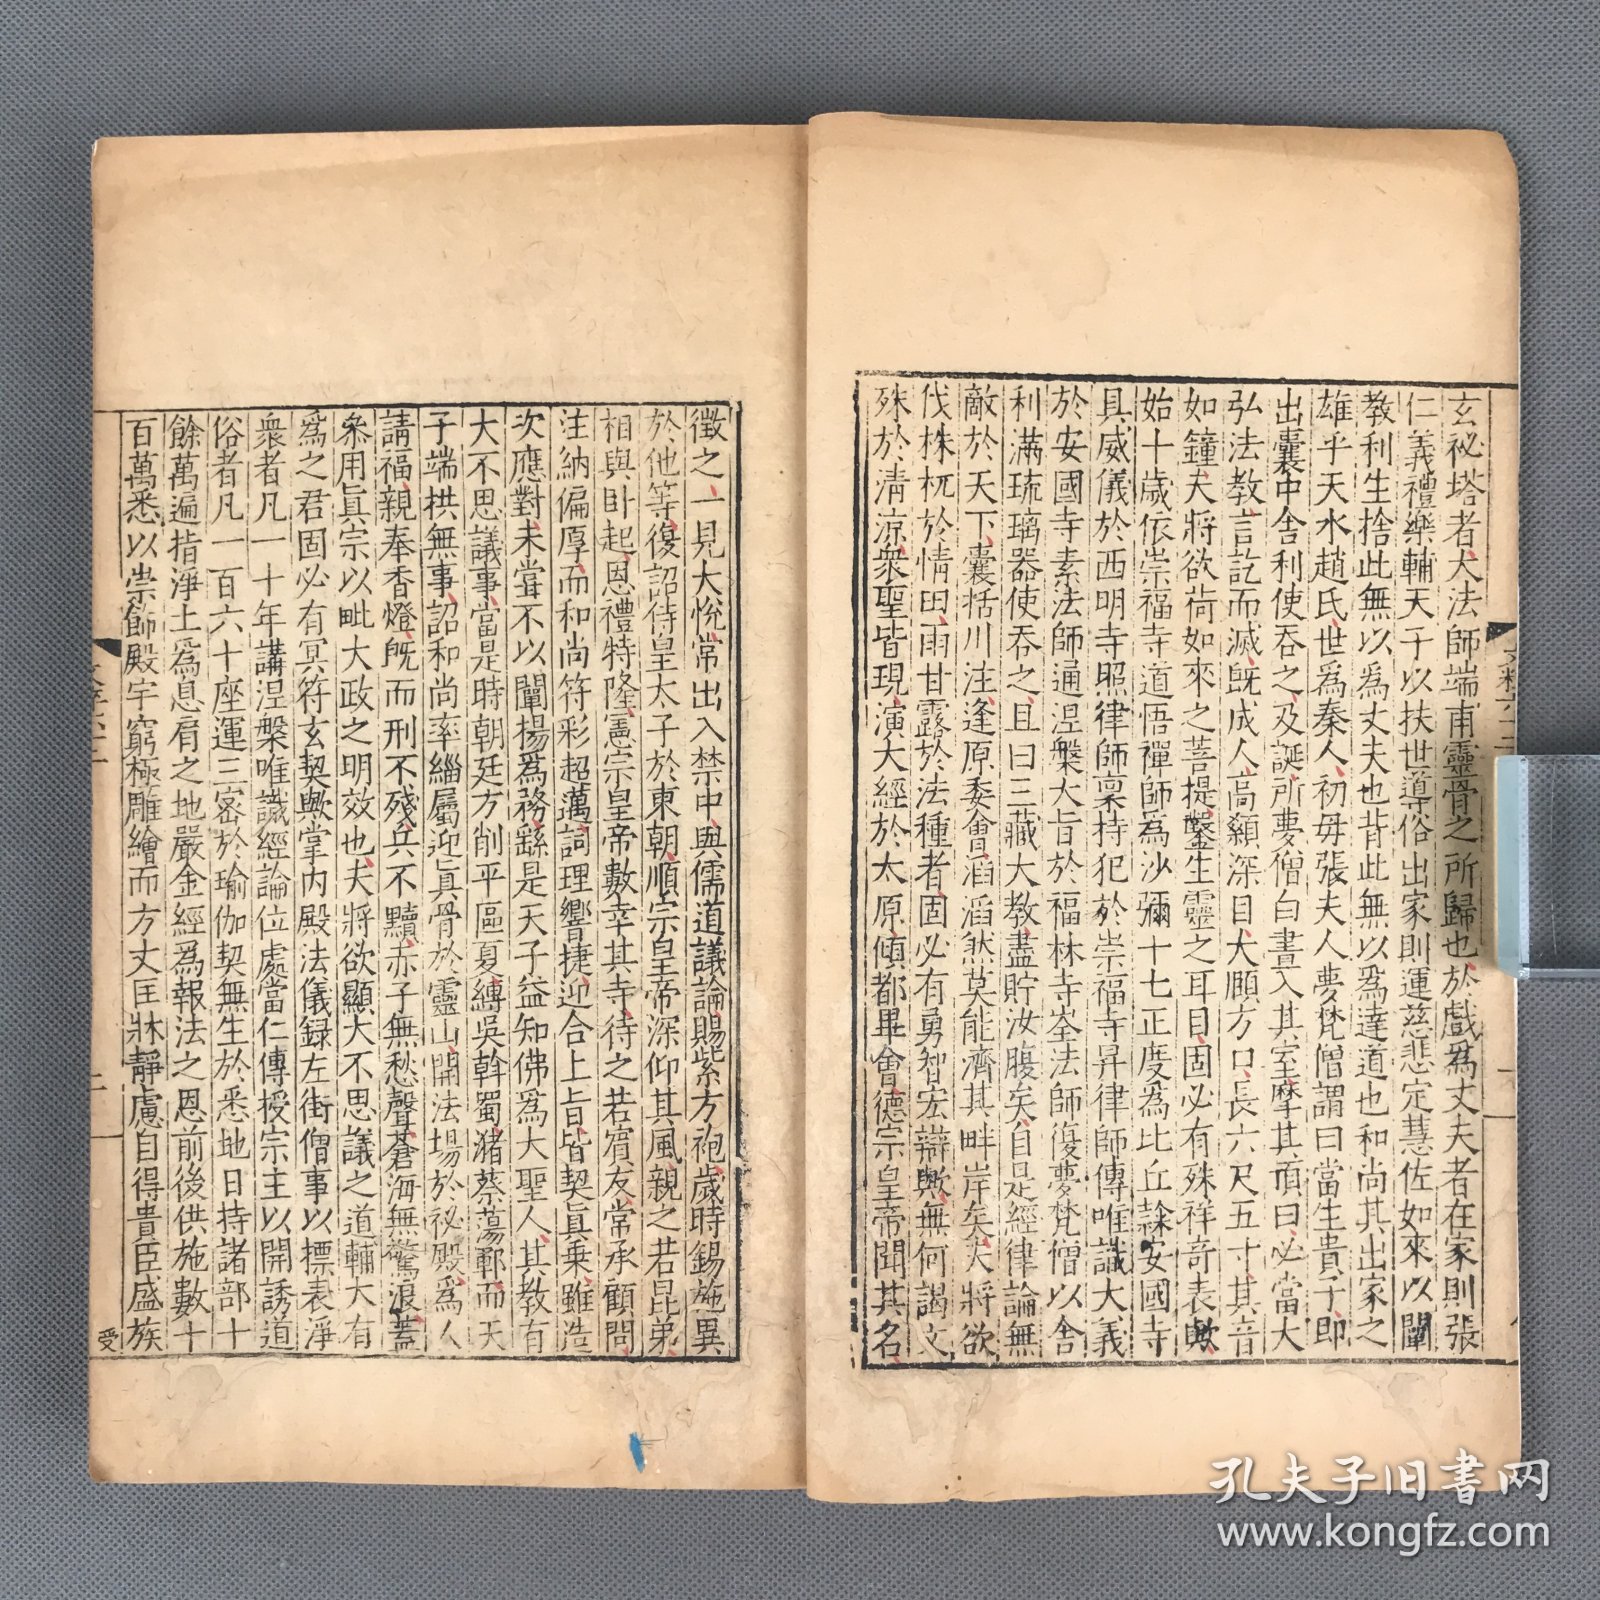 玄祕塔者大法師端甫靈骨之所歸也於戲為丈夫者在家則張
仁義禮樂輔天子以扶世導俗出家則運慈悲定慧佐如來以闡
教利生捨此無以為丈夫也背此無以為達道也和尚其出家之
雄乎天水趙氏世為秦人初母張夫人夢梵僧謂曰當生貴子即
出囊中舍利使吞之及誕所夢僧白晝入其室摩其頂曰必當大
弘法教言訖而滅旣成人高顙深目大頤方口長六尺五寸其音
如鐘夫將欲荷如來之菩提鑿生靈之耳目固必有殊祥奇表歟
始十歲依崇福寺道悟禪師為沙彌十七正度為比丘隷安國寺
具威儀於西明寺照律師稟持犯於崇福寺昇律師傳唯識大義
於安國寺素法師通涅槃大旨於福林寺崟法師復夢梵僧以舍
利滿琉璃器使吞之且曰三藏大教盡貯汝腹矣自是經律論無
敵於天下囊括川注逢原委會滔滔然莫能濟其畔岸矣夫將欲
伐株杌於情田雨甘露於法種者固必有勇智宏辯歟無何謁文
殊於清涼衆聖皆現演大經於太原傾都畢會德宗皇帝聞其名
徵之一見大悅常出入禁中與儒道議論賜紫方袍歲時錫施異
於他等復詔侍皇太子於東朝順宗皇帝深仰其風親之若昆弟
相與卧起恩禮特隆憲宗皇帝數幸其寺待之若賓友常承顧問
注納偏厚而和尚符彩超邁詞理響捷迎合上旨皆契眞乗雖造
次應對未嘗不以闡揚為務繇是天子益知佛為大聖人其教有
大不思議事當是時朝廷方削平區夏縛吳斡蜀瀦蔡蕩鄆而天
子端拱無事詔和尚率緇屬迎眞骨於靈山開法場於祕殿為人
請福親奉香燈旣而刑不殘兵不黷赤子無愁聲蒼海無驚浪蓋
叅用眞宗以毗大政之明效也夫將欲顯大不思議之道輔大有
為之君固必有冥符玄契歟掌內殿法儀録左街僧事以標表淨
衆者凡一十年講涅槃唯識經論位處當仁傳授宗主以開誘道
俗者凡一百六十座運三密於瑜伽契無生於悉地日持諸部十
餘萬遍指淨土為息肩之地嚴金經為報法之恩前後供施數十
百萬悉以崇飾殿宇窮極雕繪而方丈匡牀靜慮自得貴臣盛族
受
二
孔夫子旧书网
www.kongfz.com